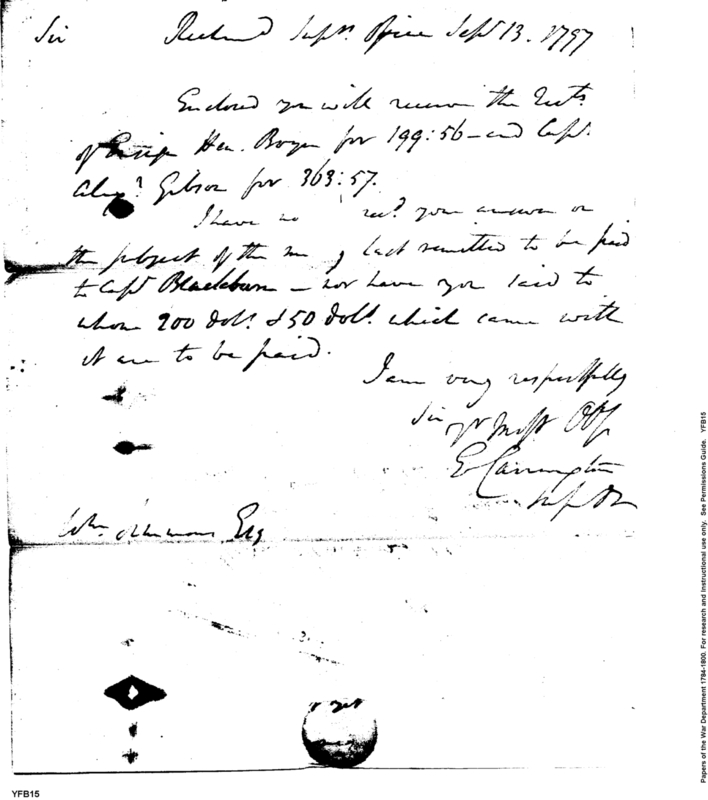 Sir Richmond Supvrs Office Sept 13. 1797
Enclosed you will receive the Rects
of Ensign Hen. Bowyer for 199:56 – and Capt.
Alexr Gibson for 363:57.
I have no recd your answer on
the subject of the last remitted to be paid
to Capt Blackburn – nor have you said to
whom 200 dols & 50 dols which came with
it are to be paid.
I am very respectfully
Sir
yr Most Obt
E Carrington
Wm Simmons Esq
YFB15
Papers of the War Department 1784-1800. For research and instructional use only. See Permissions Guide. YFB15